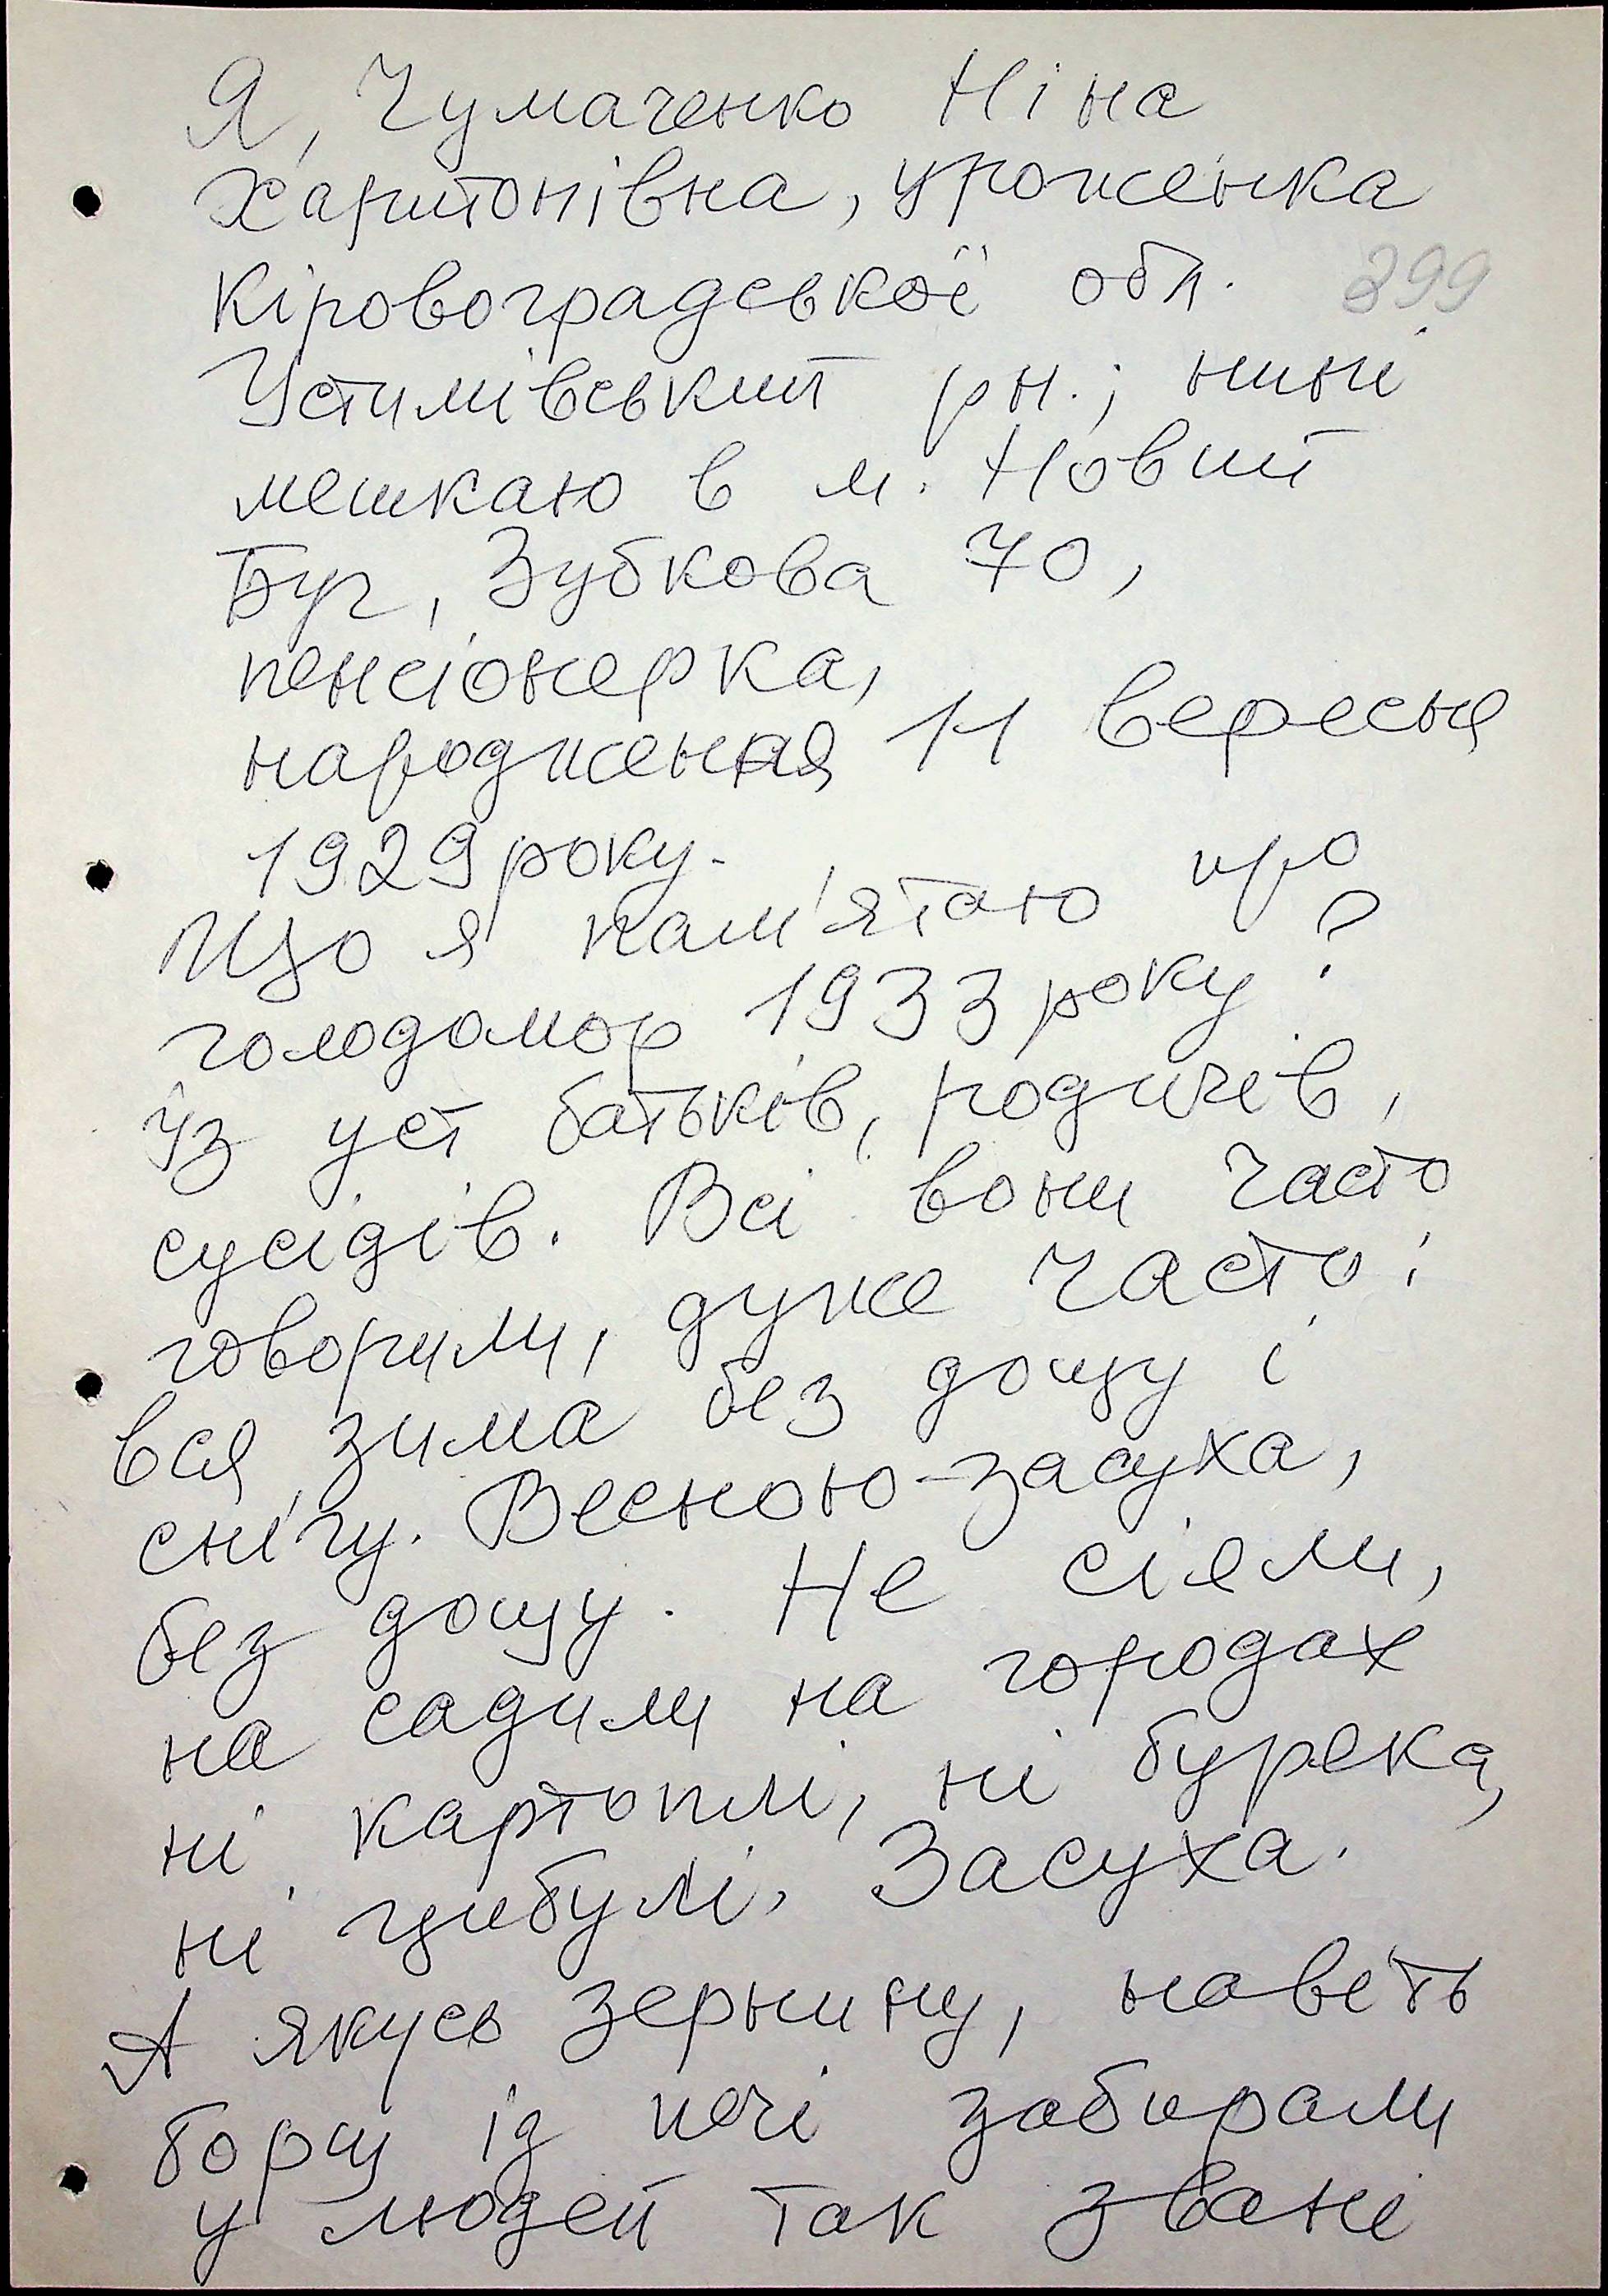 Я, Чумаченко Ніна
Харитонівна, уроженка
Кіровоградської обл.
399
Устимівський рн.; нині
мешкаю в м. Новий
Буг, Зубкова 70,
пенсіонерка,
народженая 11 вересня
1929 року.
Що я пам'ятаю про
голодомор 1933 року?
Із уст батьків, родичів,
сусідів. Всі вони часто
говорили, дуже часто:
вся зима без дощу і
снігу. Весною - засуха,
без дощу. Не сіяли,
на садили на городах
ні картоплі, ні буряка,
ні цибулі. Засуха.
А якусь зернину, навіть
борщ із печі забирали
у людей так звані